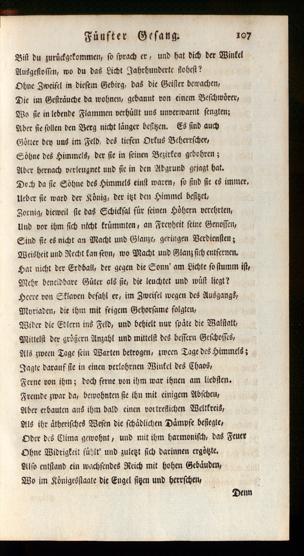 Fünfter Gesang. 107
Bist du zurückgekommen, so sprach er, und hat dich der Winkel
Ausgestossen, wo du das Licht Jahrhunderte flohest?
Ohne Zweifel in diesem Gebirg, das die Geister bewachen,
Die im Gesträuche da wohnen, gebannt von einem Beschwörer,
Wo sie in lebende Flammen verhüllt uns unverwarnt sengten;
Aber sie sollen den Berg nicht länger besitzen. Es sind auch
Götter bey uns im Feld, des tiefen Orkus Beherrscher,
Söhne des Himmels, der sie in seinen Bezirken gebohren;
Aber hernach verleugnet und sie in den Abgrund gejagt hat.
Doch da sie Söhne des Himmels einst waren, so sind sie es immer.
Ueber sie ward der König, der itzt den Himmel besitzet,
Zornig, dieweil sie das Schicksal für seinen Höhern verehrten,
Und vor ihm sich nicht krümmten, an Freyheit seine Genossen,
Sind sie es nicht an Macht und Glanze, geringen Verdiensten;
Weisheit und Recht kan seyn, wo Macht und Glanz sich entfernen.
Hat nicht der Erdball, der gegen die Sonn' am Lichte so stumm ist,
Mehr beneidbare Güter als sie, die leuchtet und wüst liegt?
Heere von Sklaven befahl er, im Zweifel wegen des Ausgangs,
Myriaden, die ihm mit feigem Gehorsame folgten,
Wider die Edlern ins Feld, und behielt nur späte die Walstatt,
Mittelst der größern Anzahl und mittelst des bessern Geschosses,
Als zween Tage sein Warten betrogen, zween Tage des Himmels;
Jagte darauf sie in einen verlohrnen Winkel des Chaos,
Ferne von ihm; doch ferne von ihm war ihnen am liebsten.
Fremde zwar da, bewohnten sie ihn mit einigem Abschen,
Aber erbauten aus ihm bald einen vortreflichen Weltkreis,
Als ihr ätherisches Wesen die schädlichen Dämpfe besiegte,
Oder des Clima gewohnt, und mit ihm harmonisch, das Feuer
Ohne Widrigkeit fühlt' und zuletzt sich darinnen ergötzte.
Also entstand ein wachsendes Reich mit hohen Gebäuden,
Wo im Königesstaate die Engel sitzen und herrschen,
Denn